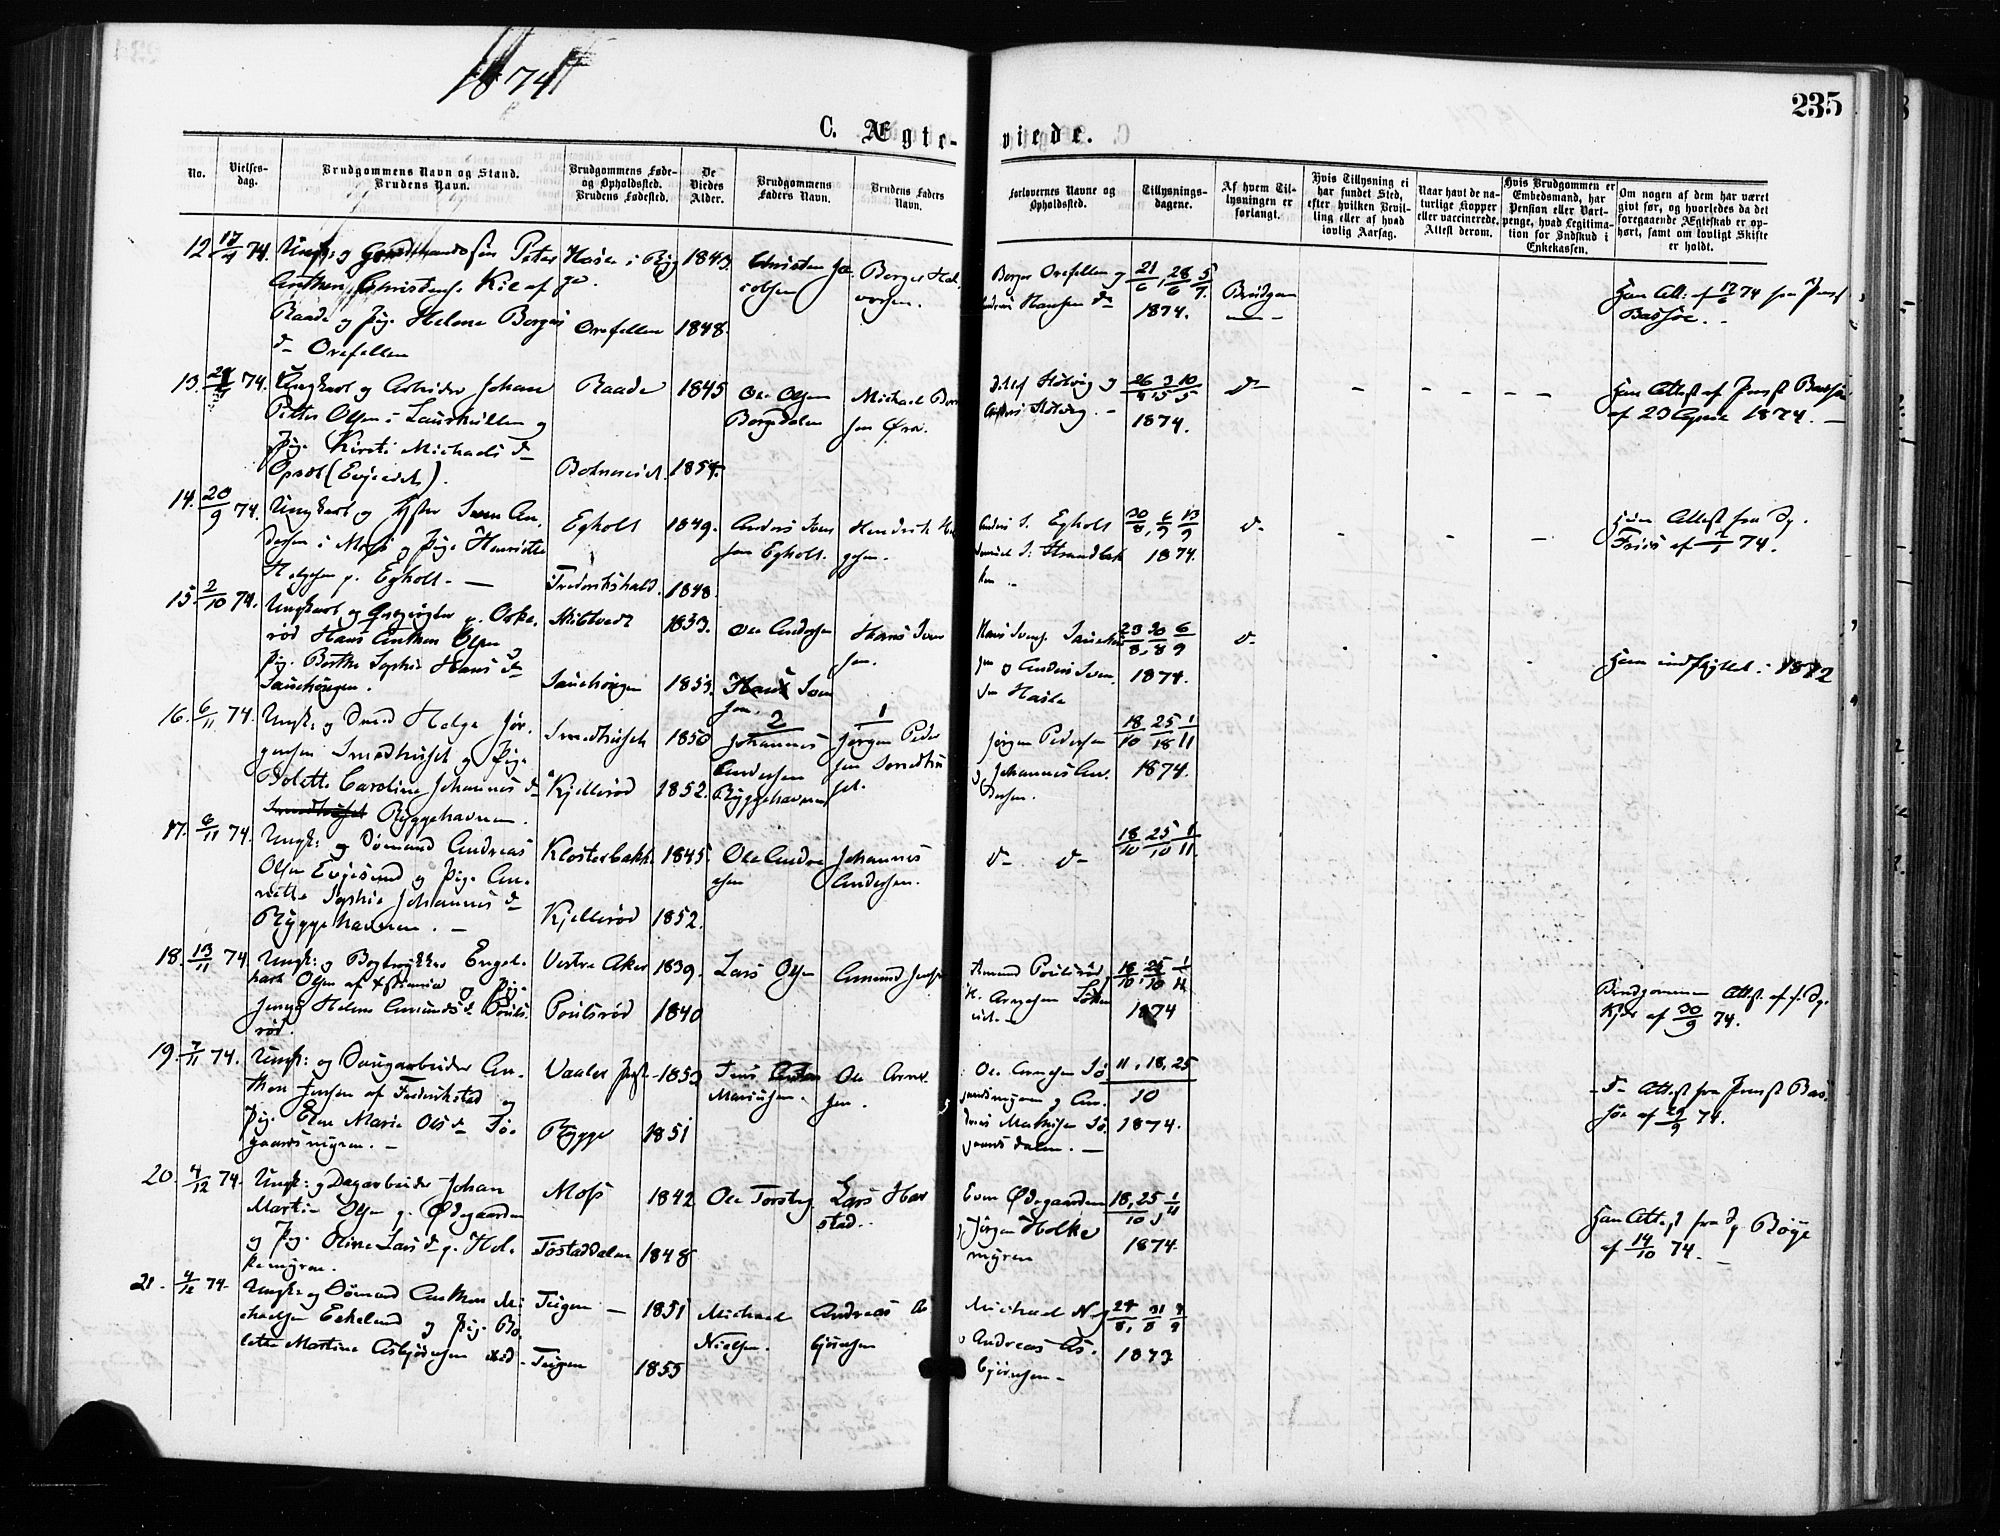 1874
235
C. Ægte-
viede.
No.
Vielses-
dag.
Brudgommens Navn og Stand.
Brudens Navn.
Brudgommens Føde-
og Opholdssted.
Brudens Fødested.
De
Viedes
Alder.
Brudgommens
Faders Navn.
Brudens Faders
Navn.
Forlovernes Navne og
Opholdssted.
Tillysnings-
dagene.
Af hvem Til-
lysningen er
forlangt.
Hvis Tillysning ei
har fundet Sted,
efter hvilken Bevil-
ling eller af hvad
lovlig Aarsag.
Naar havt de na-
turlige Kopper
eller vaccinerede.
Attest derom.
Hvis Brudgommen er
Embedsmand, har
Pension eller Vart-
penge, hvad Legitima-
tion for Indskud i
Enkekassen.
Om nogen af dem har været
gift før, og hvorledes da det
foregaaende Ægteskab er op-
hørt, samt om lovligt Skifte
er holdt.
12 74. Peter
Anthon Christens. Kil af
Raade og Pige Helene Borges
d- Orefellen
Orefellen
1843.
1848.
Christen Ja-
cobsen
Borger Hal-
vorsen.
Borger Orefellen og
Hansen d-
21/6, 28/6 5/7.
1874.
Brudgom
Han Att: af 74 fra Præst
Bassøe. -
13. 74. Ungkarl og Arbeider Johan
Petter Olsen i og
Pige Kirsti Michaels d-
Opsal (Evjeeidet).
Raade
1845
1854.
Ole Olsen
Borgedalen
Michael
26/4 3/5 10/5
1874.
d-
Han Attest af Præst Bassøe
af 23 April 1874. -
14. 20/9 74. Ungkarl og Sven An-
dersen i Moss og Pige Henriette
Helgesen p. Egholt. -
Egholt
Frederikshald.
1849.
1848.
Anders Sven
sen Egholt.
Hendrik Hel
gesen.
Anders S. Egholt
30/8, 6/9 13/9
1874.
d-
Attest fra Sg.
Friis af 74.
15. 2/10 74. Ungkarl og p. Oske-
rød Hans Anthon Olsen
Pige Berthe Sophie Hans d-
Sauehøigen.
Skibtvedt
Sauehøigen
1853.
1853.
Ole Andersen
Hans Sven
sen.
Hans Sven
sen.
og Anders Sven-
sen Hasle
23/8, 30/8 6/9
1874.
d-
Han indflyttet i 1872
16. 6/11 74. Ungk: og Smed Helge Jør-
gensen Smedhuset og Pige
Bolette Caroline Johannes d-
Smedhuset Ryggehavnen.
Smedhuset
Kjellerød
1850
1852.
2
Johannes
Andersen
Ryggehavnen
1
Jørgen Peder
sen Smedhu
set.
Jørgen Pedersen
og Johannes An-
dersen.
18/10 25/10 1/11
1874.
17. 6/11 74. Ungk: og Sømand Andreas
Olsen Evjesund og Pige An-
nette Sophie Johannes d-
Ryggehavnen. -
Klosterbakk.
Kjellerød
1845.
1852.
Ole Andre
asen
Johannes
Andersen.
d- d-
18/10 25/10 1/11.
18. 13/11 74. Ungk: og Bogtrykker Engel-
hart Olsen af Xstiania og Pige
Jensine Helene Amunds d. Pouls-
rød.
Vestre Aker
Poulsrød
1839.
1840
Lars Olsen
Amund Jensen
Amund Poulsrød
18/10, 25/10 1/11
1874
Brudgommen Attest af f. Sg.
Kjær af 30/9 74.
19. 7/11 74. Ungk: og Saugarbeider An-
thon Jensen af Frederikstad og
Pige Elene Marie Ols d- Sø-
gaardsmyren. -
Vaaler Præst-
Rygge
1853
1851
Jens
Mariusen.
Ole Arne-
sen.
Ole Arnesen Sø
gaardsmyren og An-
dreas Mathisen Sø-
gaardsdalen. -
11, 18, 25
10
1874.
- d- Attest fra Præst Bas-
søe af 29/9 74.
20. 4/12 74. Ungk: og Dagarbeider Johan
Martin Olsen p. Ødegaarden
og Pige Oline Lars d- p. Hol-
kemyren.
Moss
Tostaddalen
1842
1848
Ole Torsby
Lars Har
stad.
Even Ødegaarden
og Jørgen Holke
myren
18, 25/10, 1/11
1874.
Han Attest fra Sg Bøye
af 14/10 74. -
21. 4/12 74. Ungk: og Sømand Anthon Mi-
chaelsen Eskelund og Pige Bo
lette Martine Asbjørnsen
Teigen -
Teigen
1851
1855
Michael
Nielsen.
Andreas As
bjørnsen
Michael N
og Andreas As-
bjørnsen -
24/8, 31/8 7/9
1873